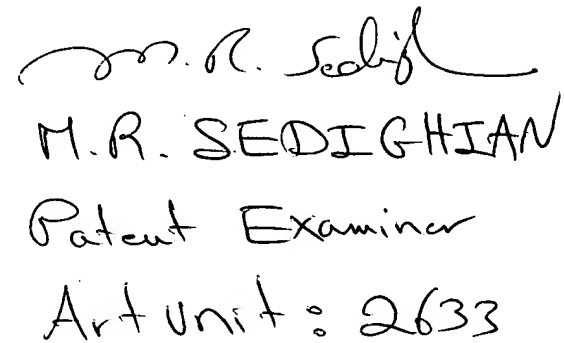 M. R. Sedigh
M.R. SEDIGHIAN
Patent Examiner
Art unit : 2633